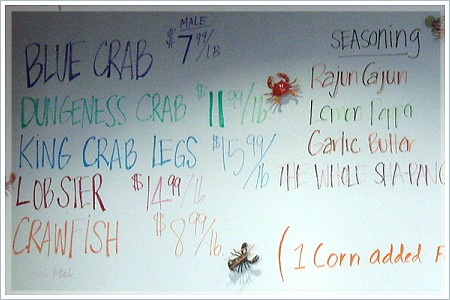 BLUE CRAB MALE $7.99/LB
DUNGENESS CRAB $11.99/lb
KING CRAB LEGS $15.99/lb
LOBSTER $14.99/lb
CRAWFISH $8.99/lb.
SEASONING
Rajun Cajun
Lemon
Garlic Butter
THE WHOLE
(1 Corn added
Mei